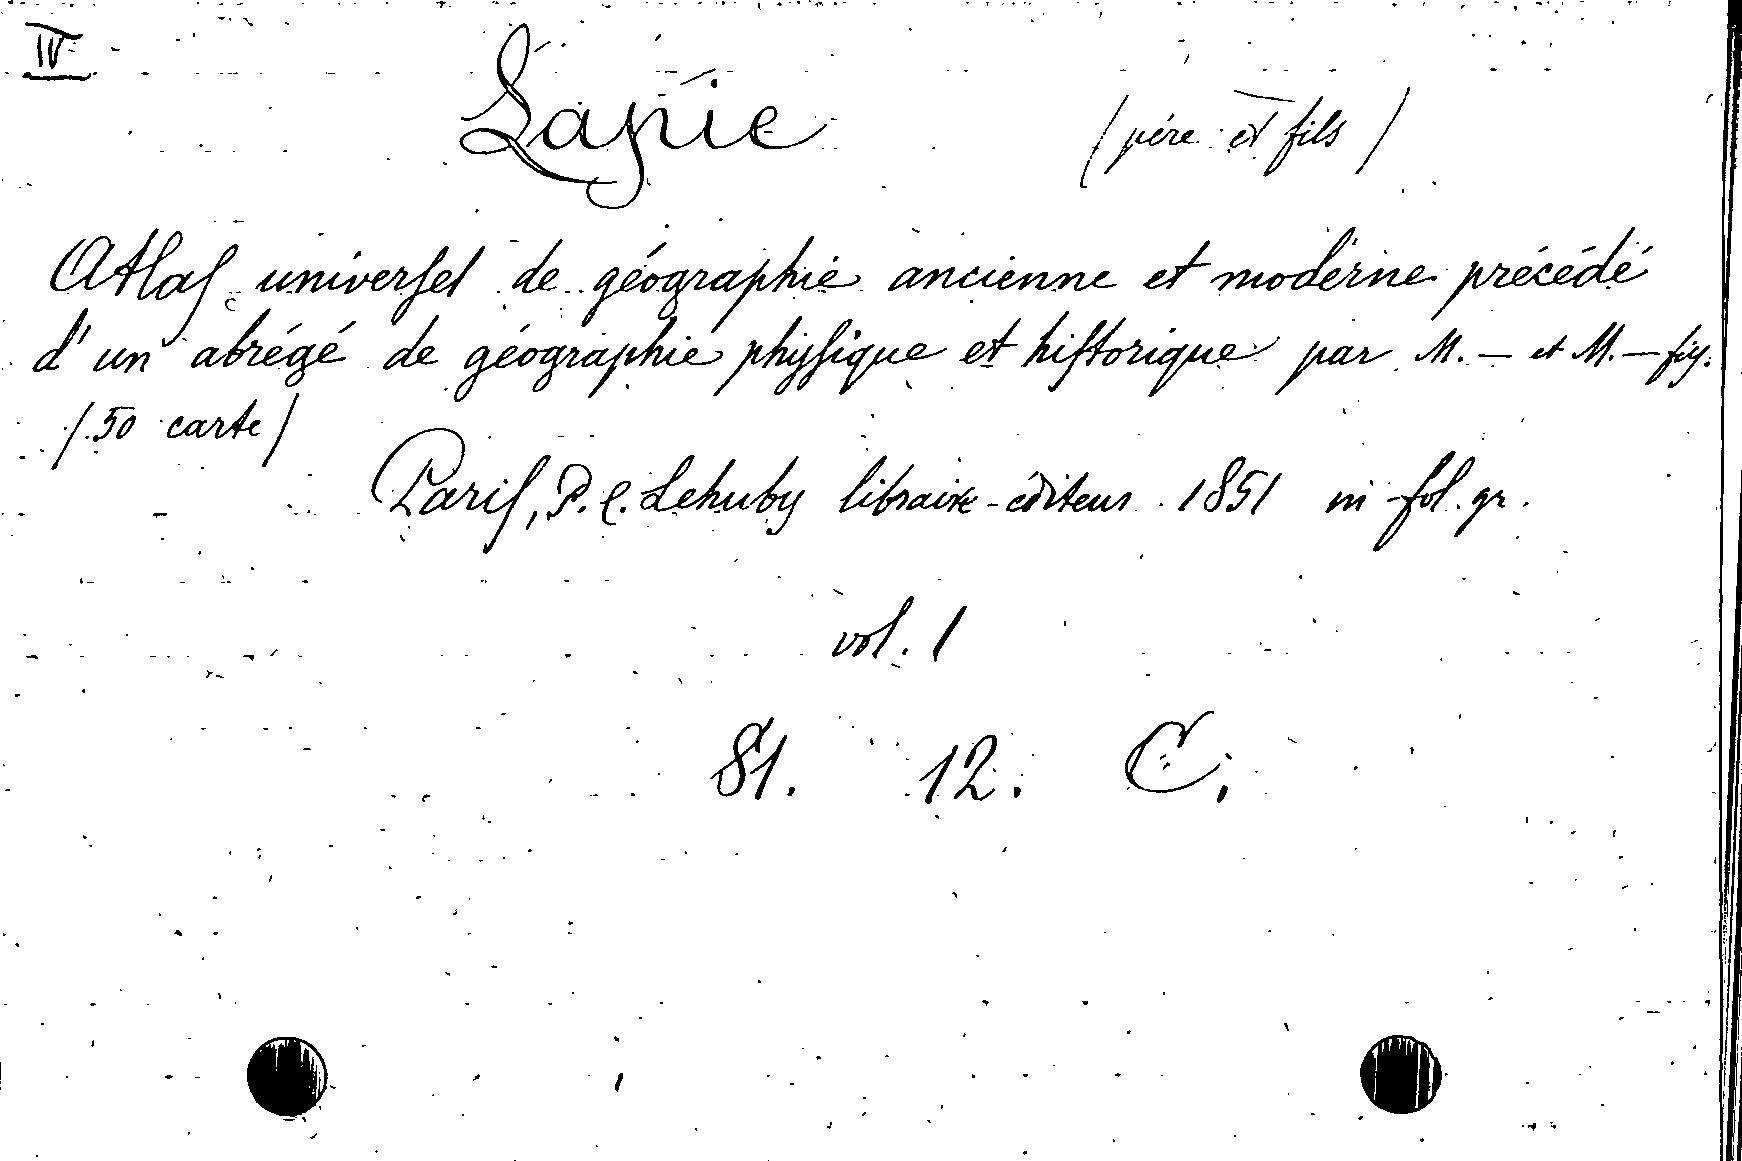 IV
Lapie (père et fils)
Atlas universel de géographie ancienne et moderne précédé
d'un abrégé de géographie physique et historique par M. — et M. — fils.
(50 carte)
Paris, P. C. Lehuby libraire-éditeur 1851 in fol. gr.
vol. 1
81. 12. C.